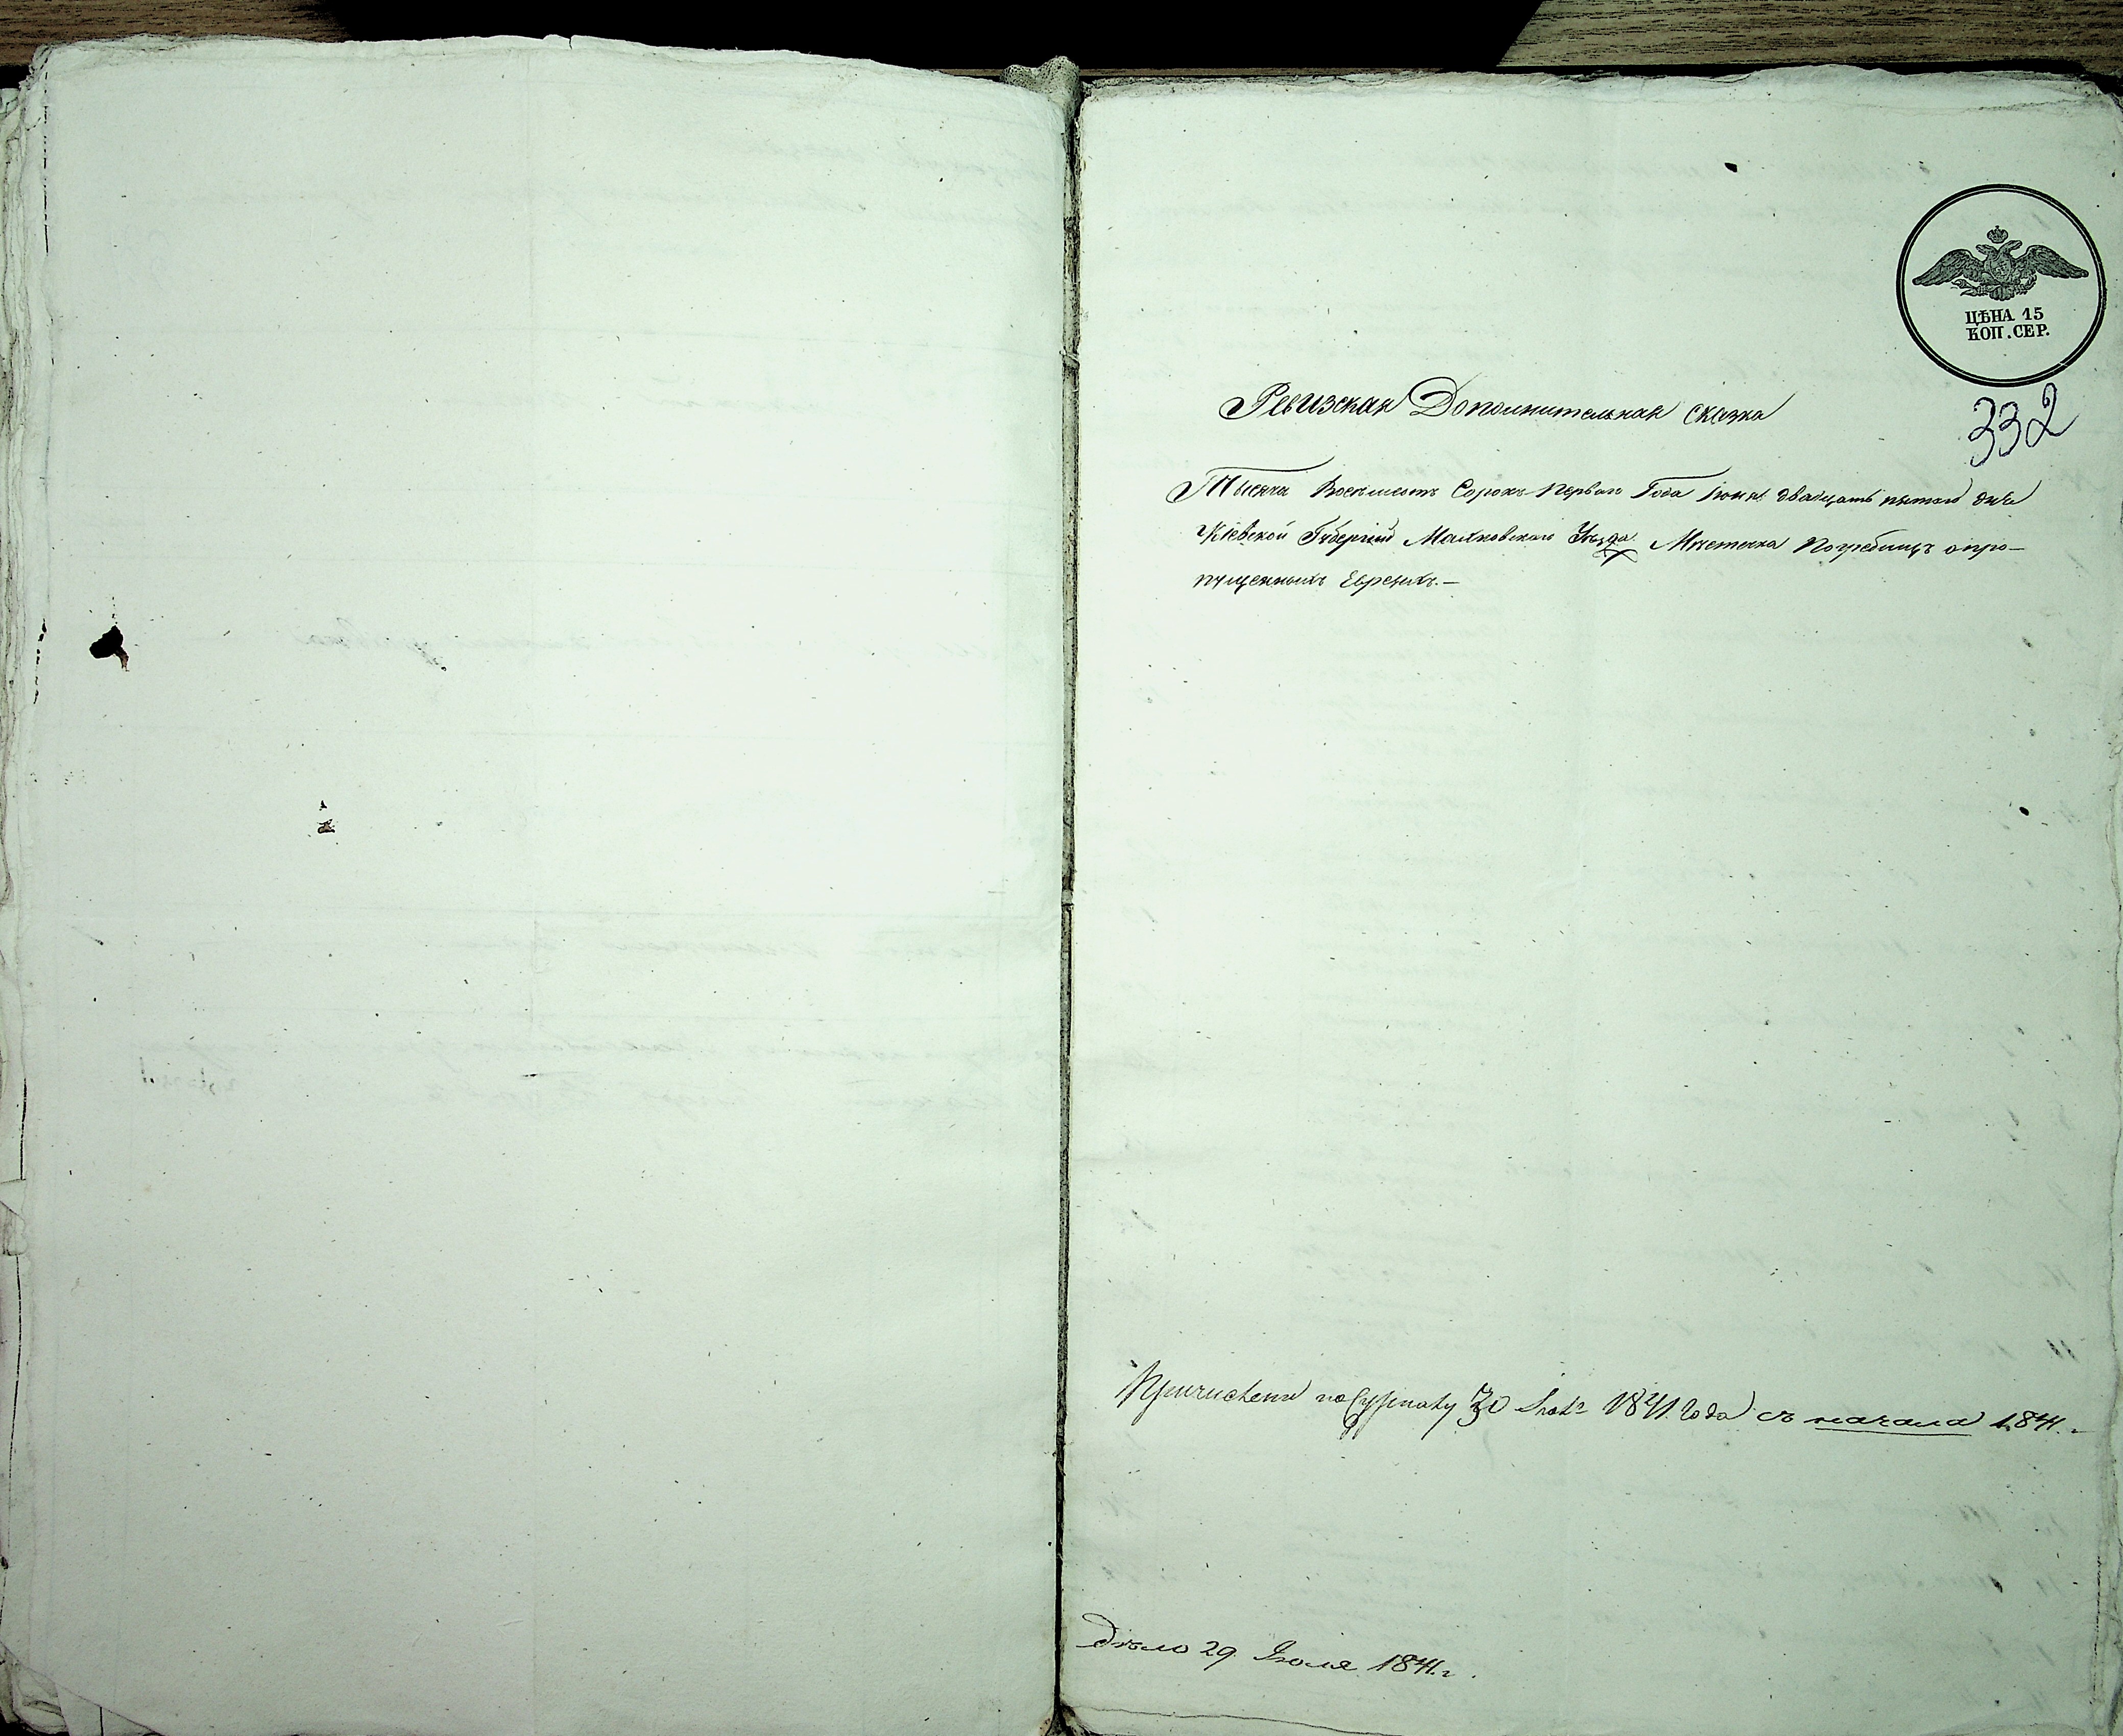 ЦѢНА 15
КОП. СЕР.
332
Ревизская Дополнительная сказка
Тысяча Восемьсотъ Сорокъ Перваго Года Іюня двадцать пятаго дня
Кіевской Губерніи Махновскаго Уѣзда Мѣстечка Погребищъ опро-
пущенныхъ Евреяхъ.—
Причислены по 30 1841. года съ начала 1841.
дѣло 29 Іюля 1841. г.